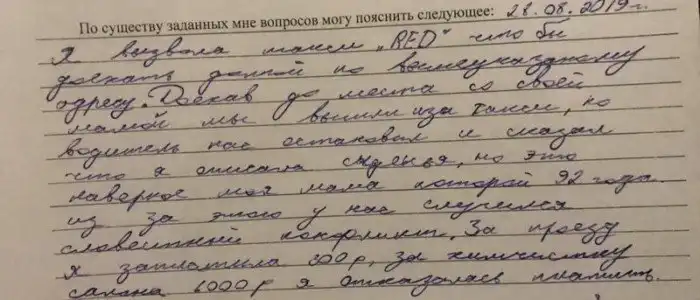 По существу заданных мне вопросов могу пояснить следующее: 28.08.2019г.
Я вызвола такси „RED" что бы
доехать домой по вышеуказанному
адресу. Доехав до места со своей
мамой мы вышли иза такси, но
водитель нас остановил и сказал
что я описала сиденья, но это
наверное моя мама которой 92 года.
из за этого у нас случился
словестный конфликт. За проезд
я заплатила 200р, за химчистку
салона 6000р я отказалась платить.